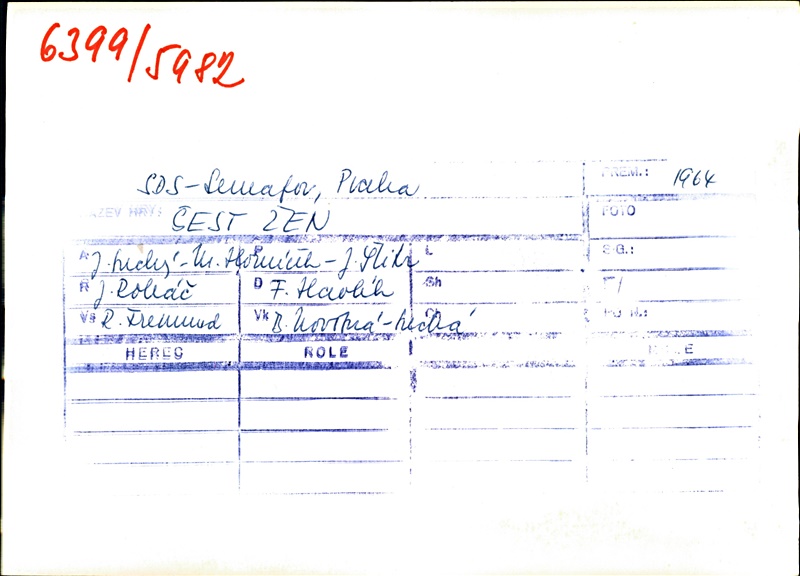 6399/5982
SDS-Semafor, Praha
PREM.: 1964
NÁZEV HRY: ČEST ŽEN
FOTO
A J. Suchý - M. Horníček - J. Šlitr
P
L
S.G.:
R J. Roháč
D F. Havlík
Sh
F/
Vs R. Fremund
Vk B. Novotná-Suchá
HEREC ROLE